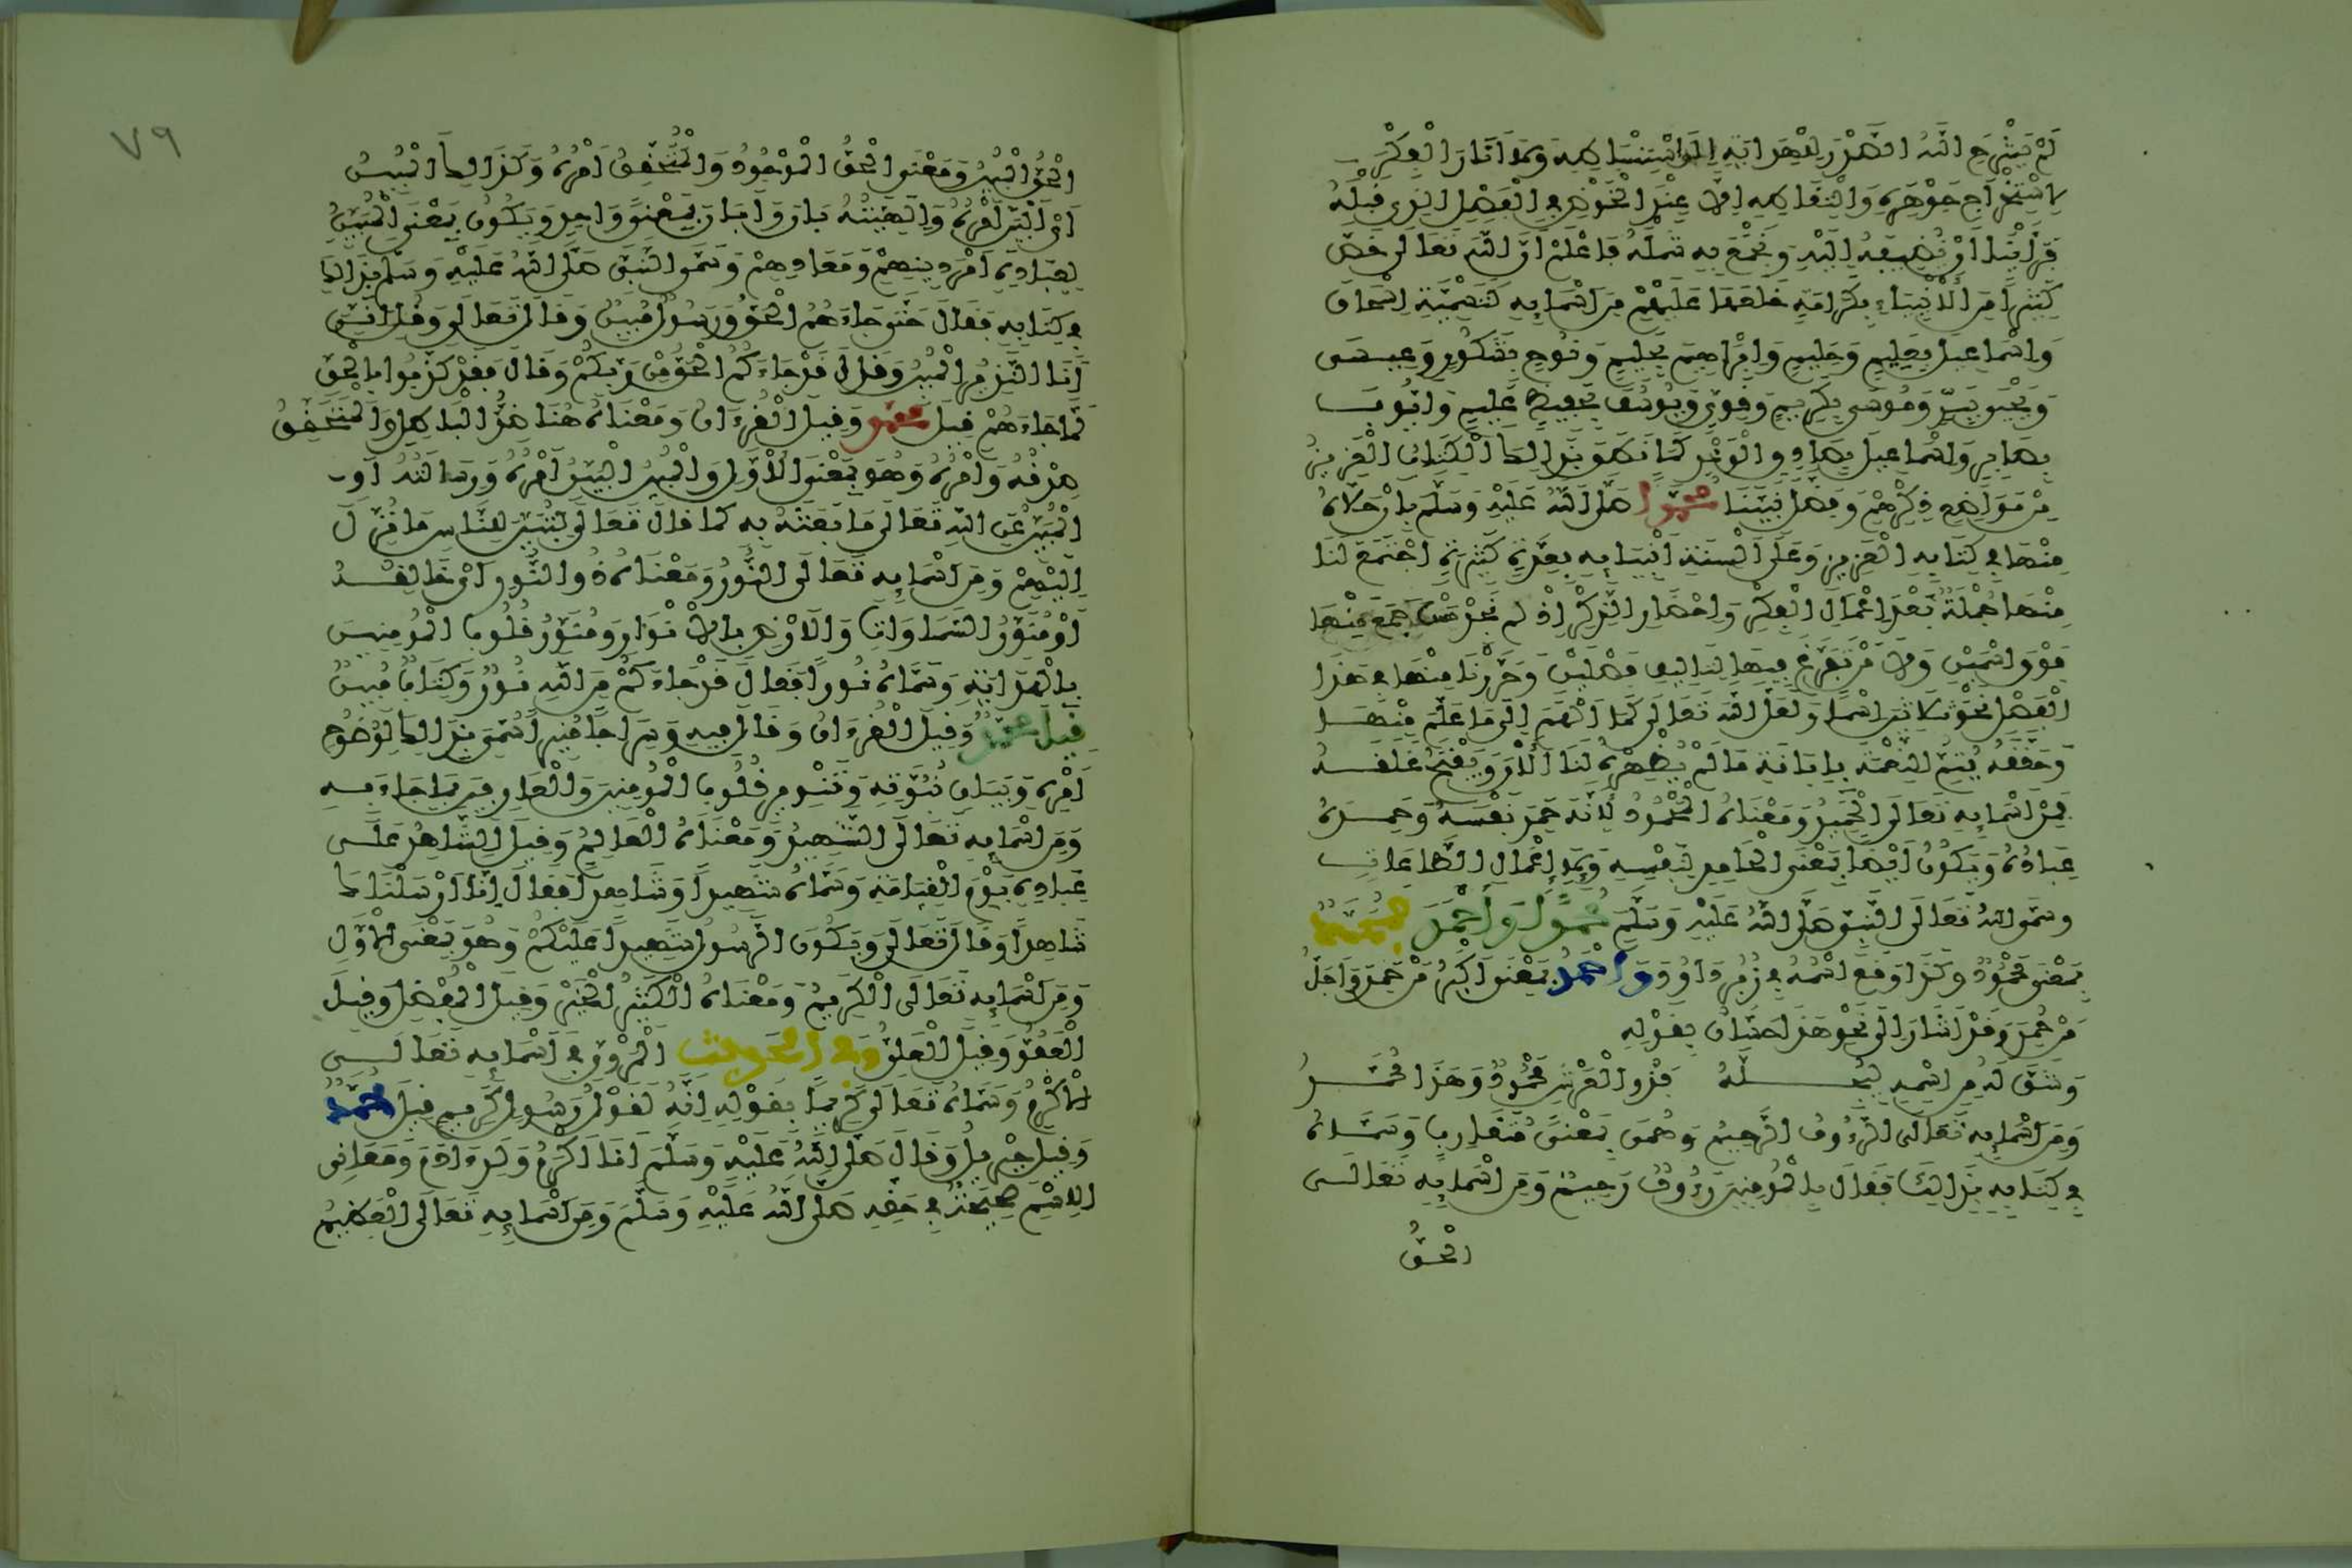 لم يشرح الله الصدر للهداية إلى استنباطه ولا أنار الفكر
لاستخراج جوهره والتقاطه إلا عند الخوض في الفصل الذي قبله
فرأينا أن نضيفه إليه ونجمع به شمله فاعلم أن الله تعالى خص
كثيرا من الأنبياء بكرامة خلعها عليهم من أسمائه كتسمية إسحاق
وإسماعيل بعليم وحليم وإبراهيم بحليم ونوح بشكور وعيسى
ويحيى ببر وموسى بكريم وقوي ويوسف بحفيظ عليم وأيوب
بصابر وإسماعيل بصادق الوعد كما نطق بذلك الكتاب العزيز
من مواضع ذكرهم وفضل نبينا محمدا صلى الله عليه وسلم بأن حلاه
منها في كتابه العزيز وعلى ألسنة أنبيائه بعدة كثيرة اجتمع لنا
منها جملة بعد إعمال الفكر وإحضار الذكر إذ لم نجد من جمع منها
فوق اسمين ولا من تفرغ فيها لتأليف فصلين وحررنا منها في هذا
الفصل نحو ثلاثين اسما ولعل الله تعالى كما ألهم إلى ما علم منها
وحققه يتم النعمة بإبانة ما لم يظهره لنا الآن ويفتح غلقه
فمن أسمائه تعالى الحميد ومعناه المحمود لأنه حمد نفسه وحمده
عباده ويكون أيضا بمعنى الحامد لنفسه ولأعمال الطاعات
وسمى الله تعالى النبي صلى الله عليه وسلم محمدا وأحمد فمحمد
بمعنى محمود وكذا وقع اسمه في زبر داوود وأحمد بمعنى أكبر من حمد وأجل
من حمد وقد أشار إلى نحو هذا حسان بقوله
وشق له من اسمه ليجله فذو العرش محمود وهذا محمد
ومن أسمائه تعالى الرءوف الرحيم وهما بمعنى متقارب وسماه
في كتابه بذلك فقال بالمؤمنين رءوف رحيم ومن أسمائه تعالى
الحق
٧٩
الحق المبين ومعنى الحق الموجود والمتحقق أمره وكذلك المبين
أي البين أمره وإلهيته بان وأبان بمعنى واحد ويكون بمعنى المبين
لعباده أمر دينهم ومعادهم وسمى النبي صلى الله عليه وسلم بذلك
في كتابه فقال حتى جاءهم الحق ورسول مبين وقال تعالى وقل إني
أنا النذير المبين وقال قد جاءكم الحق من ربكم وقال فقد كذبوا بالحق
لما جاءهم قيل محمد وقيل القرءان ومعناه هنا ضد الباطل والمتحقق
صدقه وأمره وهو بمعنى الأول والمبين البين أمره ورسالته أو
المبين عن الله تعالى ما بعثه به كما قال تعالى لتبين للناس ما نزل
إليهم ومن أسمائه تعالى النور ومعناه ذو النور أي خالقه
أو منور السماوات والأرض بالأنوار ومنور قلوب المؤمنين
بالهداية وسماه نورا فقال قد جاءكم من الله نور وكتاب مبين
قيل محمد وقيل القرءان وقال فيه وسراجا منيرا سمي بذلك لوضوح
أمره وبيان نبوته وتنوير قلوب المؤمنين والعارفين بما جاء به
ومن أسمائه تعالى الشهيد ومعناه العالم وقيل الشاهد على
عباده يوم القيامة وسماه شهيدا وشاهدا فقال إنا أرسلناك
شاهدا وقال تعالى ويكون الرسول شهيدا عليكم وهو بمعنى الأول
ومن أسمائه تعالى الكريم ومعناه الكثير الخير وقيل المفضل وقيل
العفو وقيل العلي وفي الحديث المروي في أسمائه تعالى
الأكرم وسماه تعالى كريما بقوله إنه لقول رسول كريم قيل محمد
وقيل جبريل وقال صلى الله عليه وسلم أنا أكرم ولد ءادم ومعاني
الاسم صحيحة في حقه صلى الله عليه وسلم ومن أسمائه تعالى العظيم